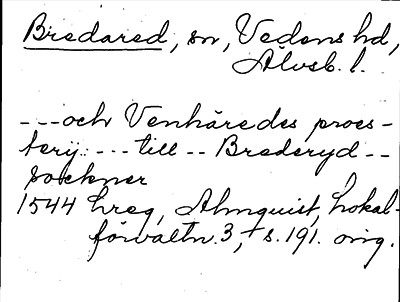 Bredared, sn, Vedens hd,
Älvsb. l.
---och Venhäredes proes-
terij: --- till -- Brederyd --
sockner
1544 hreg, Almquist, Lokal-
förvaltn. 3, + s. 191. orig.